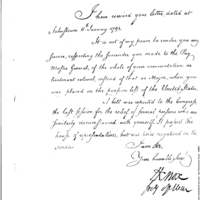 I have received your letter dated at
5th January 1792.
It is not of my power to render you any
service, respecting the forwards you made to the Pay
Master General, of the whole of your renumeration as
lieutenant colonel, instead of that as Major, when you
was placed on the pension list of the United States.
A bill was reported to the Congress the
last Session for the relief of several persons who are
similarly circumstanced with yourself. It passed the
house of representatives, but was lost negatived in the
senate.
I am Sir
Your humble Servt
H Knox
Secy of War